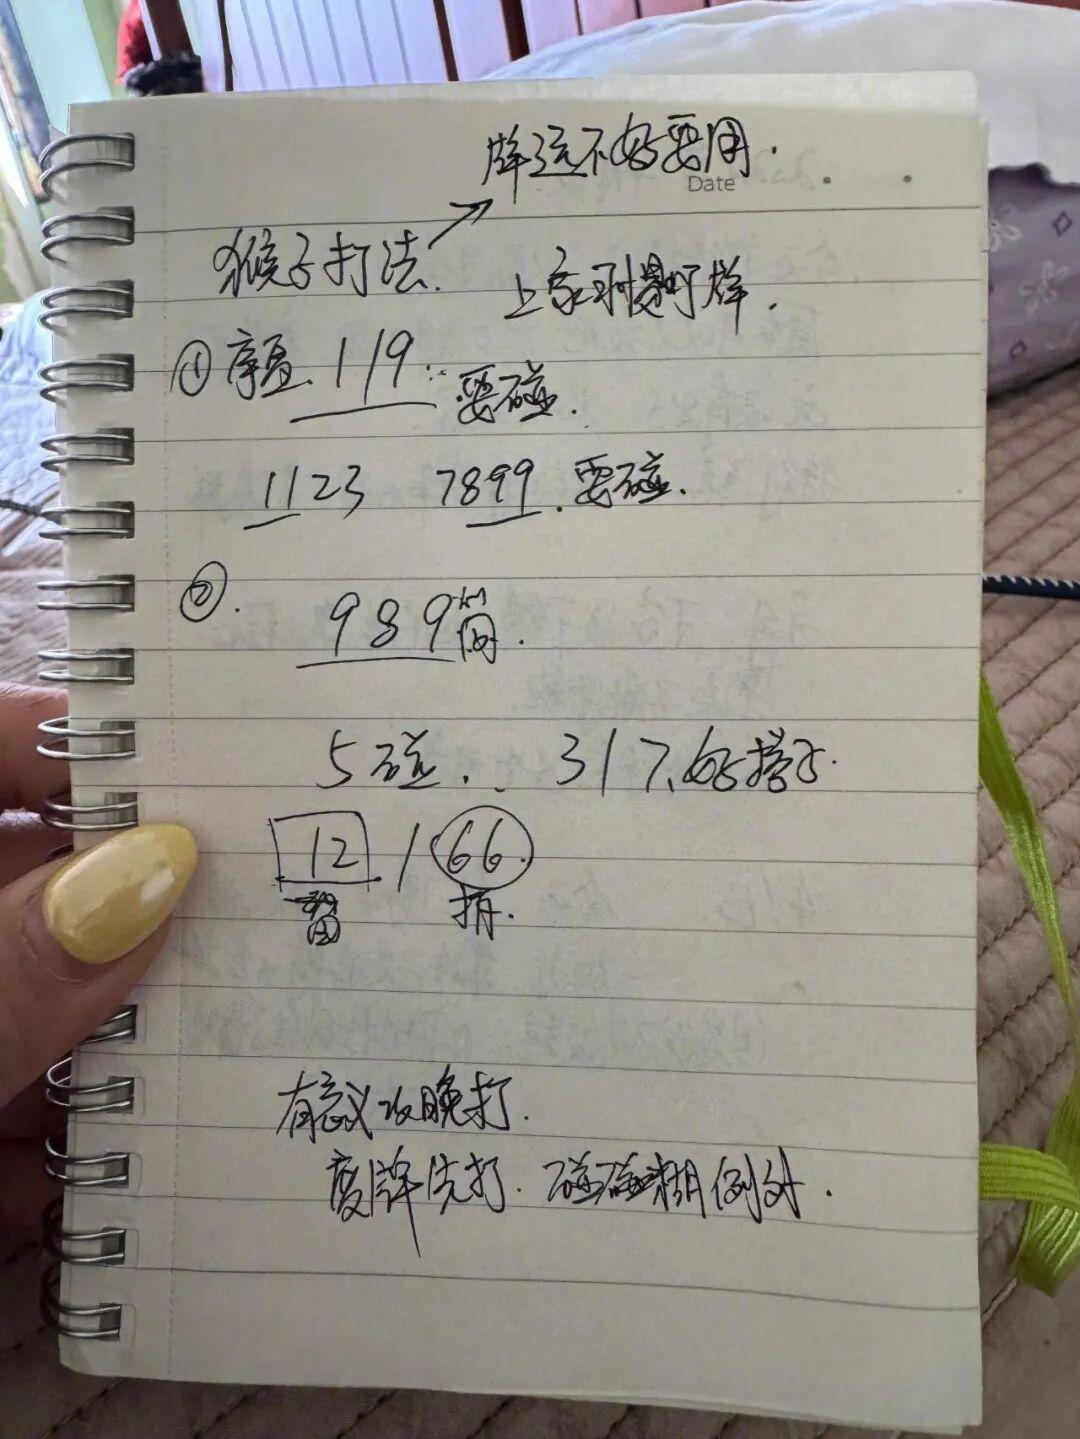 牌运不好要用.
Date
猴子打法.
上家盯牌.
① 119. 要碰.
1123 7899. 要碰.
②. 989筒.
5碰. 317.好搭子.
12 / 66.
留 捐.
有意义 晚打.
废牌先打. 碰碰糊例外.